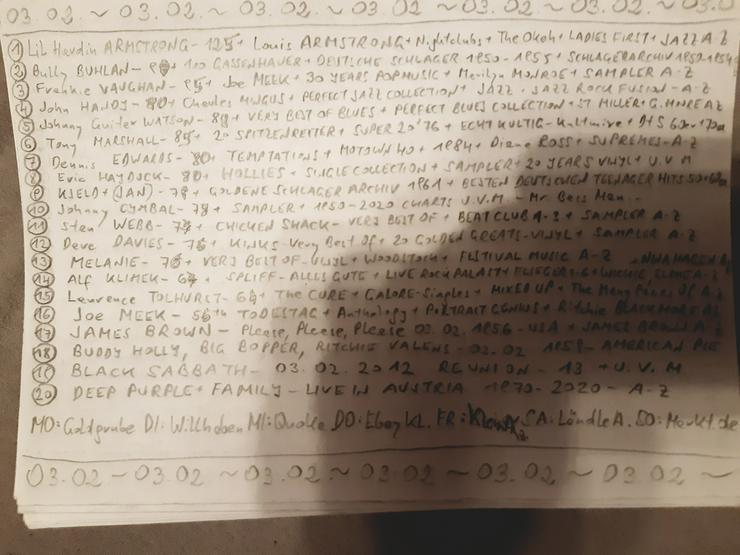 03.02 ~ 03.02 ~ 03.02 ~ 03.02 ~ 03.02 ~ 03.02 ~ 03.0
① Lil Hardin ARMSTRONG - 125 + Louis ARMSTRONG + Nightclubs + The Okeh + LADIES FIRST + JAZZ A-Z
② Bully BUHLAN - + 100 GASSENHAUER + DEUTSCHE SCHLAGER 1950 - 1955 + SCHLAGERARCHIV 1950-1954
③ Frankie VAUGHAN - 95 + Joe MEEK + 30 YEARS POPMUSIC + Marilyn MONROE + SAMPLER A-Z
④ John HANDY - 90 + Charles MINGUS + PERFECT JAZZ COLLECTION + JAZZ - JAZZ ROCK FUSION - A-Z
⑤ Johnny Guiter WATSON - + VERY BEST OF BLUES + PERFECT BLUES COLLECTION + ST MILLER + G. MORE AZ
⑥ Tony MARSHALL - 85 + 20 SPITZENREITER + SUPER 20'76 + ECHT KULTIG - + DHS 60er + 70er
⑦ Dennis EDWARDS - 80 + TEMPTATIONS + MOTOWN 40 + 1984 + Diane ROSS + SUPREMES - A-Z
⑧ Eric HAYDOCK - 80 + HOLLIES + SINGLE COLLECTION + SAMPLER + 20 YEARS VINYL + U.V.M
⑨ KJELD + (JAN) - 79 + GOLDENE SCHLAGER ARCHIV 1961 + BESTEN DEUTSCHEN TEENAGER HITS 50+60er
⑩ Johnny CYMBAL - + SAMPLER + 1950-2020 CHARTS U.V.M - Mr. Bass Man...
⑪ Stan WEBB - + CHICKEN SHACK - VERY BEST OF + BEAT CLUB A-Z + SAMPLER A-Z
⑫ Dave DAVIES - + KINKS - Very Best Of + 20 GOLDEN GREATS - VINYL + SAMPLER A-Z
⑬ MELANIE - + VERY BEST OF - VINYL + WOODSTOCK + FESTIVAL MUSIC A-Z + NINA HAGEN B
⑭ Alf KLIMEK - + SPLIFF - ALLES GUTE + LIVE ROCKPALAST + FLIEGER
⑮ Laurence TOLHURST - + The CURE + GALORE - Singles + MIXED UP + The Many Faces Of A-Z
⑯ Joe MEEK - 56th TODESTAG + Anthology + PORTRAIT GENIUS + Ritchie BLACKMORE AZ
⑰ JAMES BROWN - Please, Please, Please 03.02.1956 - USA + JAMES BROWN A-Z
⑱ BUDDY HOLLY, BIG BOPPER, RITCHIE VALENS - 03.02 1959 - AMERICAN PIE
⑲ BLACK SABBATH - 03.02.2012 REUNION - 13 + U.V.M
⑳ DEEP PURPLE + FAMILY - LIVE IN AUSTRIA 1970-2020 - A-Z
MO: Goldgrube DI: Willhaben MI: Quoka DO: Ebay KL. FR: SA: LändleA. SO: Markt.de
03.02 ~ 03.02 ~ 03.02 ~ 03.02 ~ 03.02 ~ 03.02 ~ 03.02